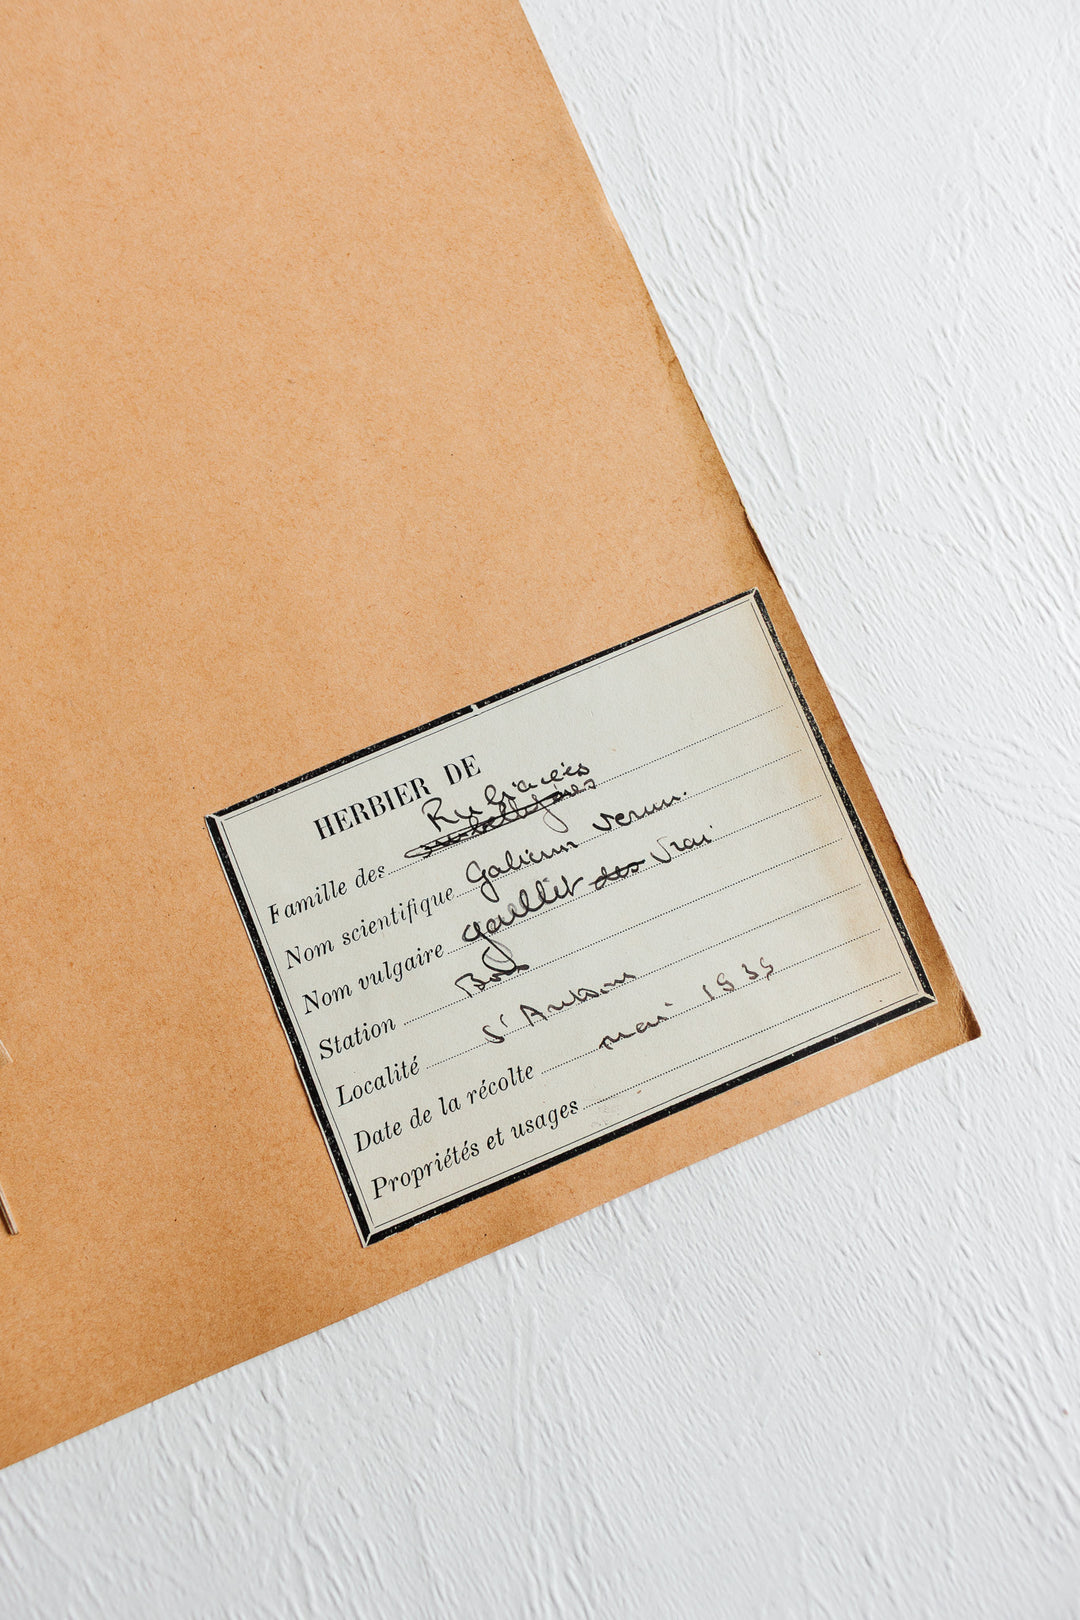 HERBIER DE
Rubiacées
Famille des ombellifères
Nom scientifique Galium verum.
Nom vulgaire gaillet des vrai
Station Bois
Localité St
Date de la récolte mai 1939
Propriétés et usages